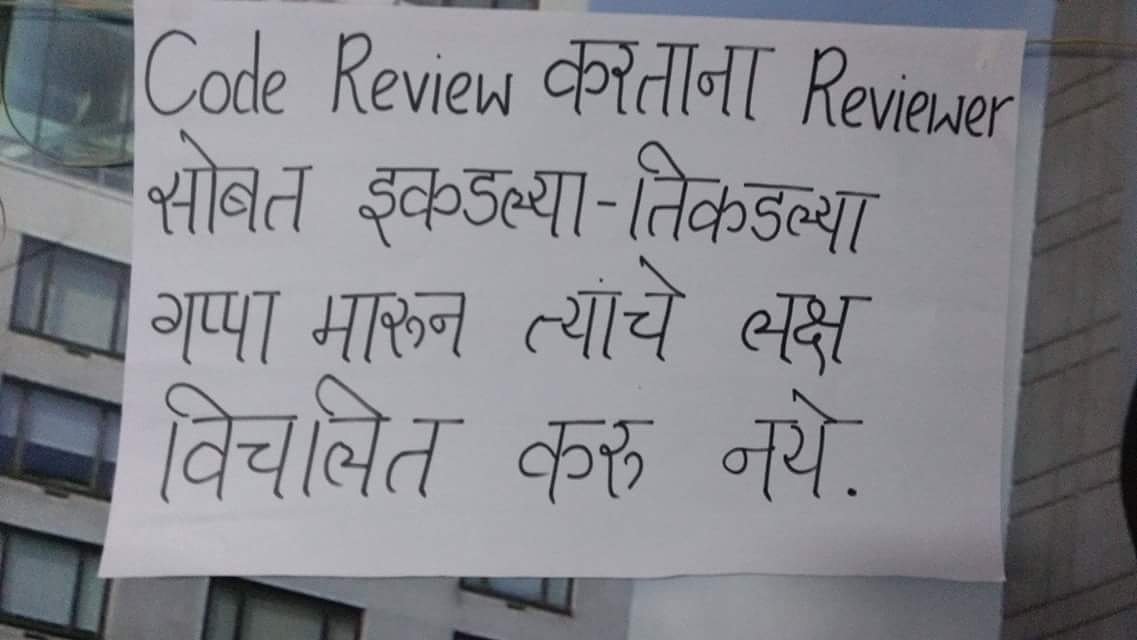 Code Review करताना Reviewer
सोबत इकडल्या-तिकडल्या
गप्पा मारून त्यांचे लक्ष
विचलित करु नये.